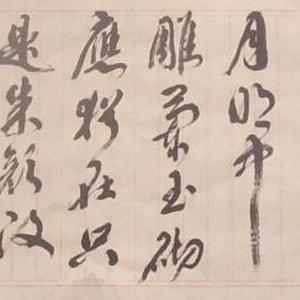 月明中
雕蘭玉砌
應猶在只
是朱顏改